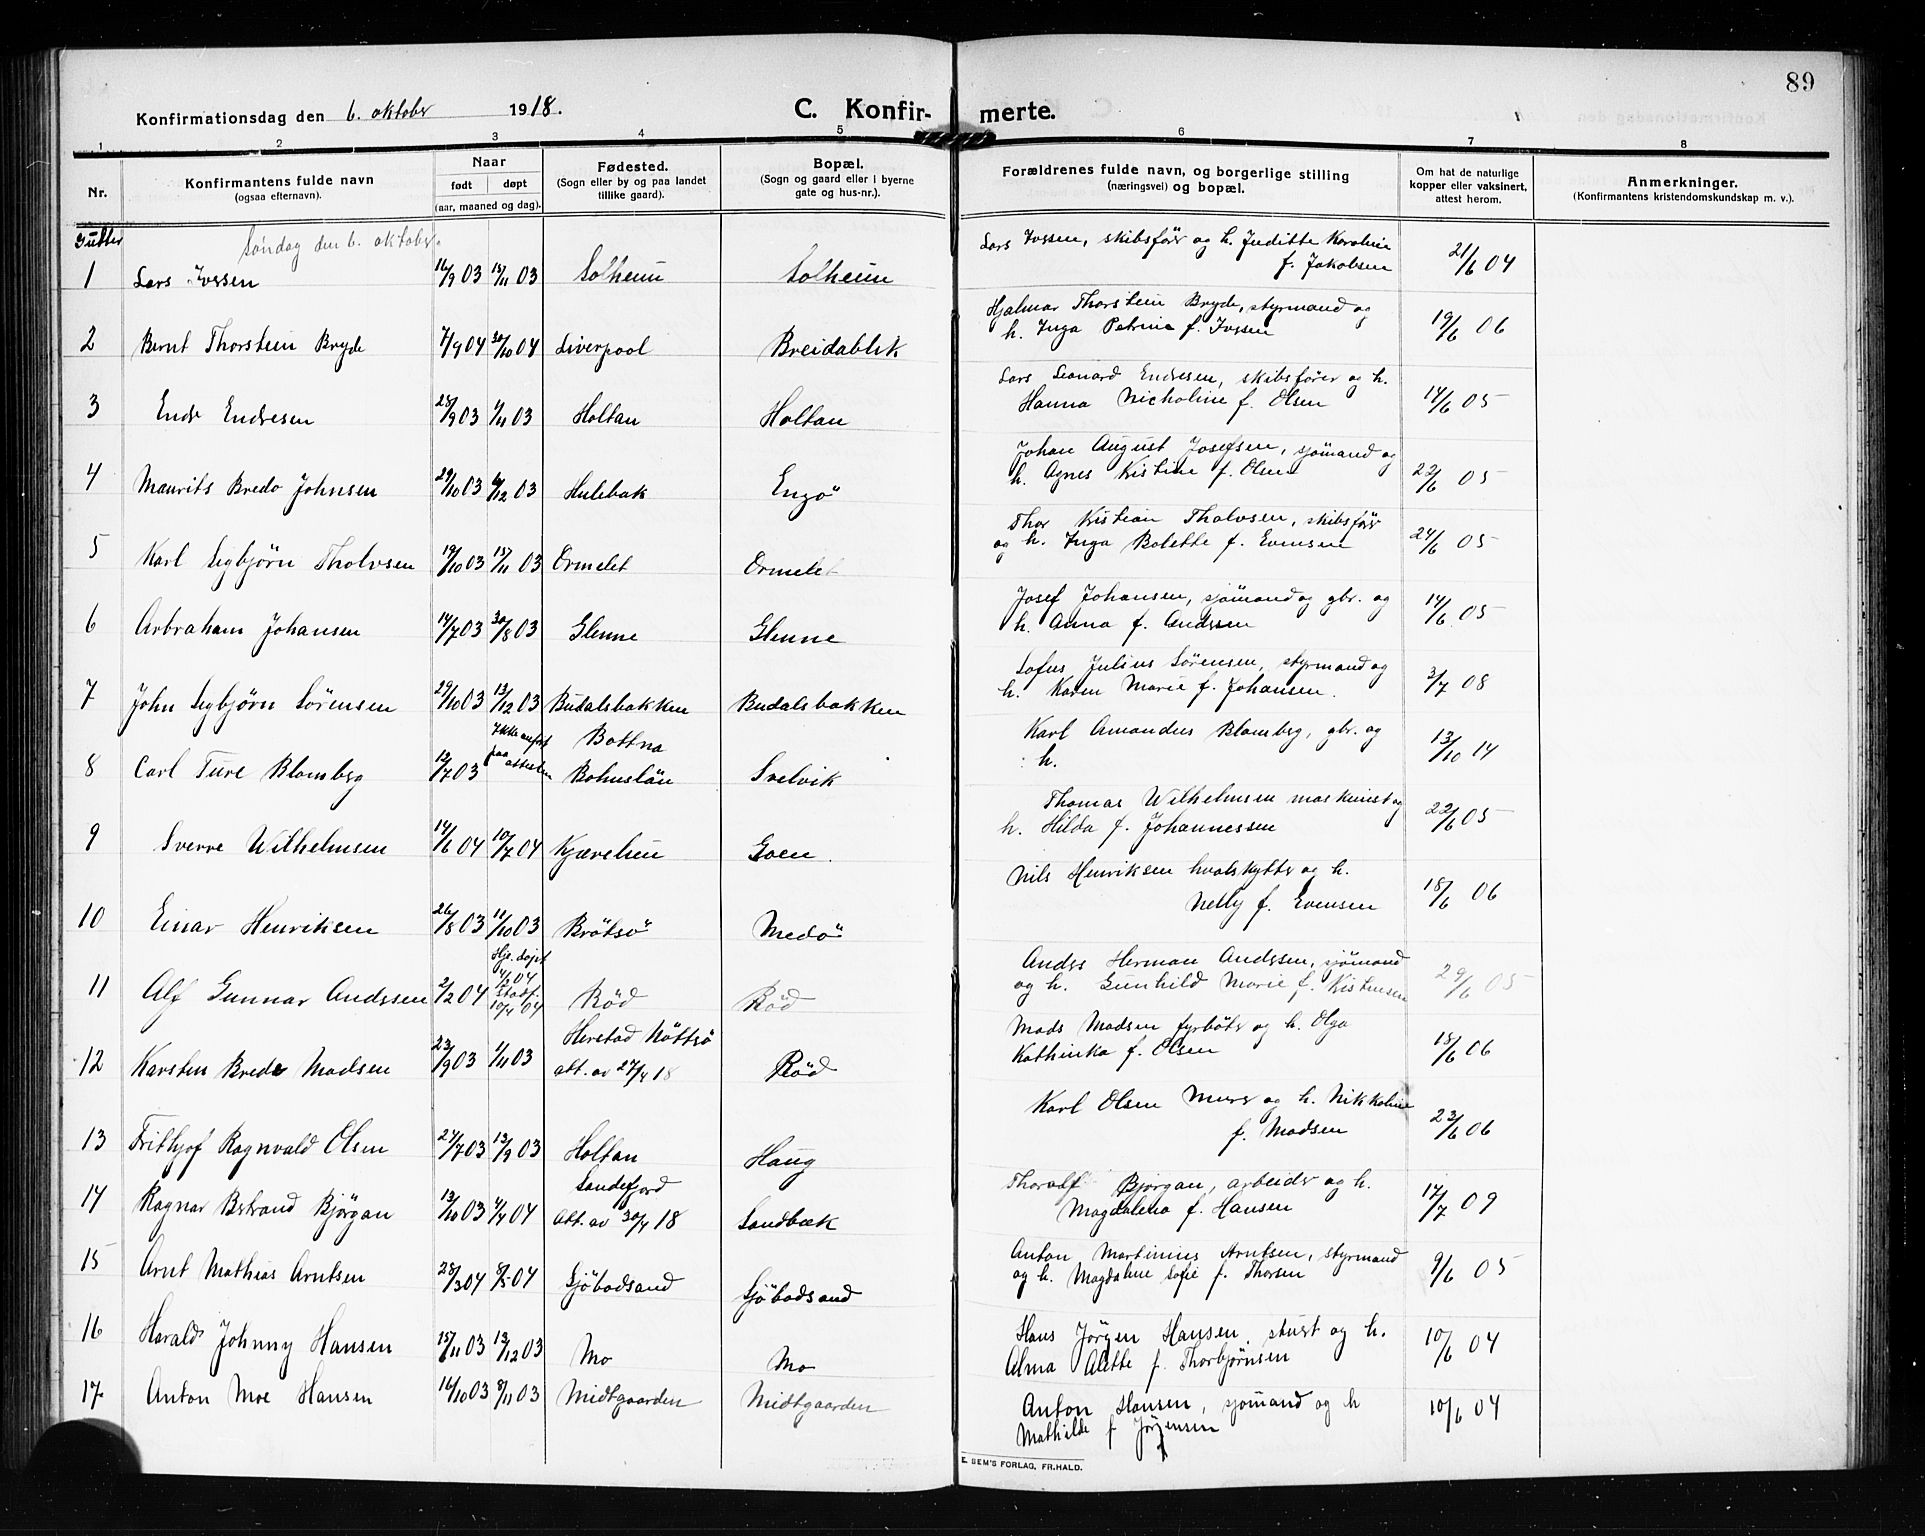 89
Konfirmationsdag den 6. oktober 1918.
C. Konfir-
merte.
1 2 3 4 5 6 7 8
Nr.
Konfirmantens fulde navn
(ogsaa efternavn).
Naar
født døpt
(aar, maaned og dag).
Fødested.
(Sogn eller by og paa landet
tillike gaard).
Bopæl.
(Sogn og gaard eller i byerne
gate og hus-nr.).
Forældrenes fulde navn, og borgerlige stilling
(næringsvei) og bopæl.
Om hat de naturlige
kopper eller vaksinert,
attest herom.
Anmerkninger.
(Konfirmantens kristendomskundskap m. v.).
Gutter
Søndag den 6. oktober.
1 Lars Iversen 16/9 03 15/11 03 Solheim Solheim
Lars Iversen, skibsfører og h. Juditte Karoline
f. Jakobsen 21/6 04
2 Bernt Thorstein Bryde 7/9 04 30/10 04 Liverpool Breidablik
Hjalmar Thorstein Bryde, styrmand og
h. Inga Petrine f. Iversen 19/6 06
3 Endr Endresen 28/9 03 1/11 03 Holtan Holtan
Lars Leonard Endresen, skibsfører og h.
Hanna Nicholine f. Olsen 14/6 05
4 Maurits Bredo Johnsen 29/10 03 6/12 03 Hulebak Engö
Johan August Josefsen, sjömand og
h. Agnes Kristine f. Olsen 22/6 05
5 Karl Sigbjørn Tholvsen 19/10 03 15/11 03 Ormelet Ormelet
Thor Kristian Tholvsen, skibsfører
og h. Inga Bolette f. Evensen 24/6 05
6 Arbraham Johansen 14/7 03 30/8 03 Glenne Glenne
Josef Johansen, sjömand og gbr. og
h. Anna f. Anderssen 14/6 05
7 John Sigbjørn Sørensen 29/10 03 13/12 03 Budalsbakken Budalsbakken
Sofus Julius Sørensen, styrmand og
h. Karen Marie f. Johansen. 3/7 08
8 Carl Ture Blomberg 12/7 03 Ikke anført
paa attesten Bottna
Bohuslän Svelvik
Karl Amandus Blomberg, gbr. og
h. 13/10 14
9 Sverre Wilhelmsen 14/6 04 10/7 04 Kjærelsen Goen.
Thomas Wilhelmsen maskinist og
h. Hilda f. Johannessen 22/6 05
10 Einar Henriksen 26/8 03 11/10 03 Brötsö Medö
Nils Henriksen hvalskytter og h.
Nelly f. Evensen 18/6 06
11 Alf Gunnar Anderssen 2/2 04 Hje. døpt
4/2 04
Stadf.
10/4 04 Röd Röd
Anders Herman Anderssen, sjömand
og h. Gunhild Marie f. Kristensen 29/6 05
12 Karsten Brede Madsen 23/9 03 1/11 03 Herstad Nöttrö
att. av 27/4 18 Röd
Mads Madsen fyrböter og h. Olga
Kathinka f. Olsen 18/6 06
13 Frithjof Ragnvald Olsen 27/7 03 13/9 03 Holtan Haug
Karl Olsen Murer og h. Nikkoline
f. Madsen 23/6 06
14 Ragnar Bertrand Bjørgan 13/10 03 4/4 04 Sandefjord
Att. av 30/4 18 Sandbæk
Thoralf Bjørgan, arbeider og h.
Magdalena f. Hansen 17/7 09
15 Arnt Mathias Arntsen 28/3 04 8/5 04 Sjöbodsand Sjöbodsand
Anton Martinius Arntsen, styrmand
og h. Magdalene Sofie f. Thorsen 9/6 05
16 Harald Johnny Hansen 15/11 03 13/12 03 Mo Mo
Hans Jørgen Hansen, stuert og h.
Alma Alette f. Thorbjørnsen 10/6 04
17 Anton Moe Hansen 16/10 03 8/11 03 Midtgaarden Midtgaarden
Anton Hansen, sjömand og h
Mathilde f Jørgensen 10/6 04
E. SEM'S FORLAG, FR.HALD.